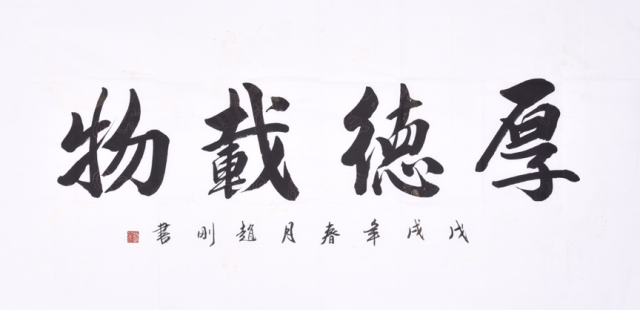 厚德載物
戊戌年春月趙刚書